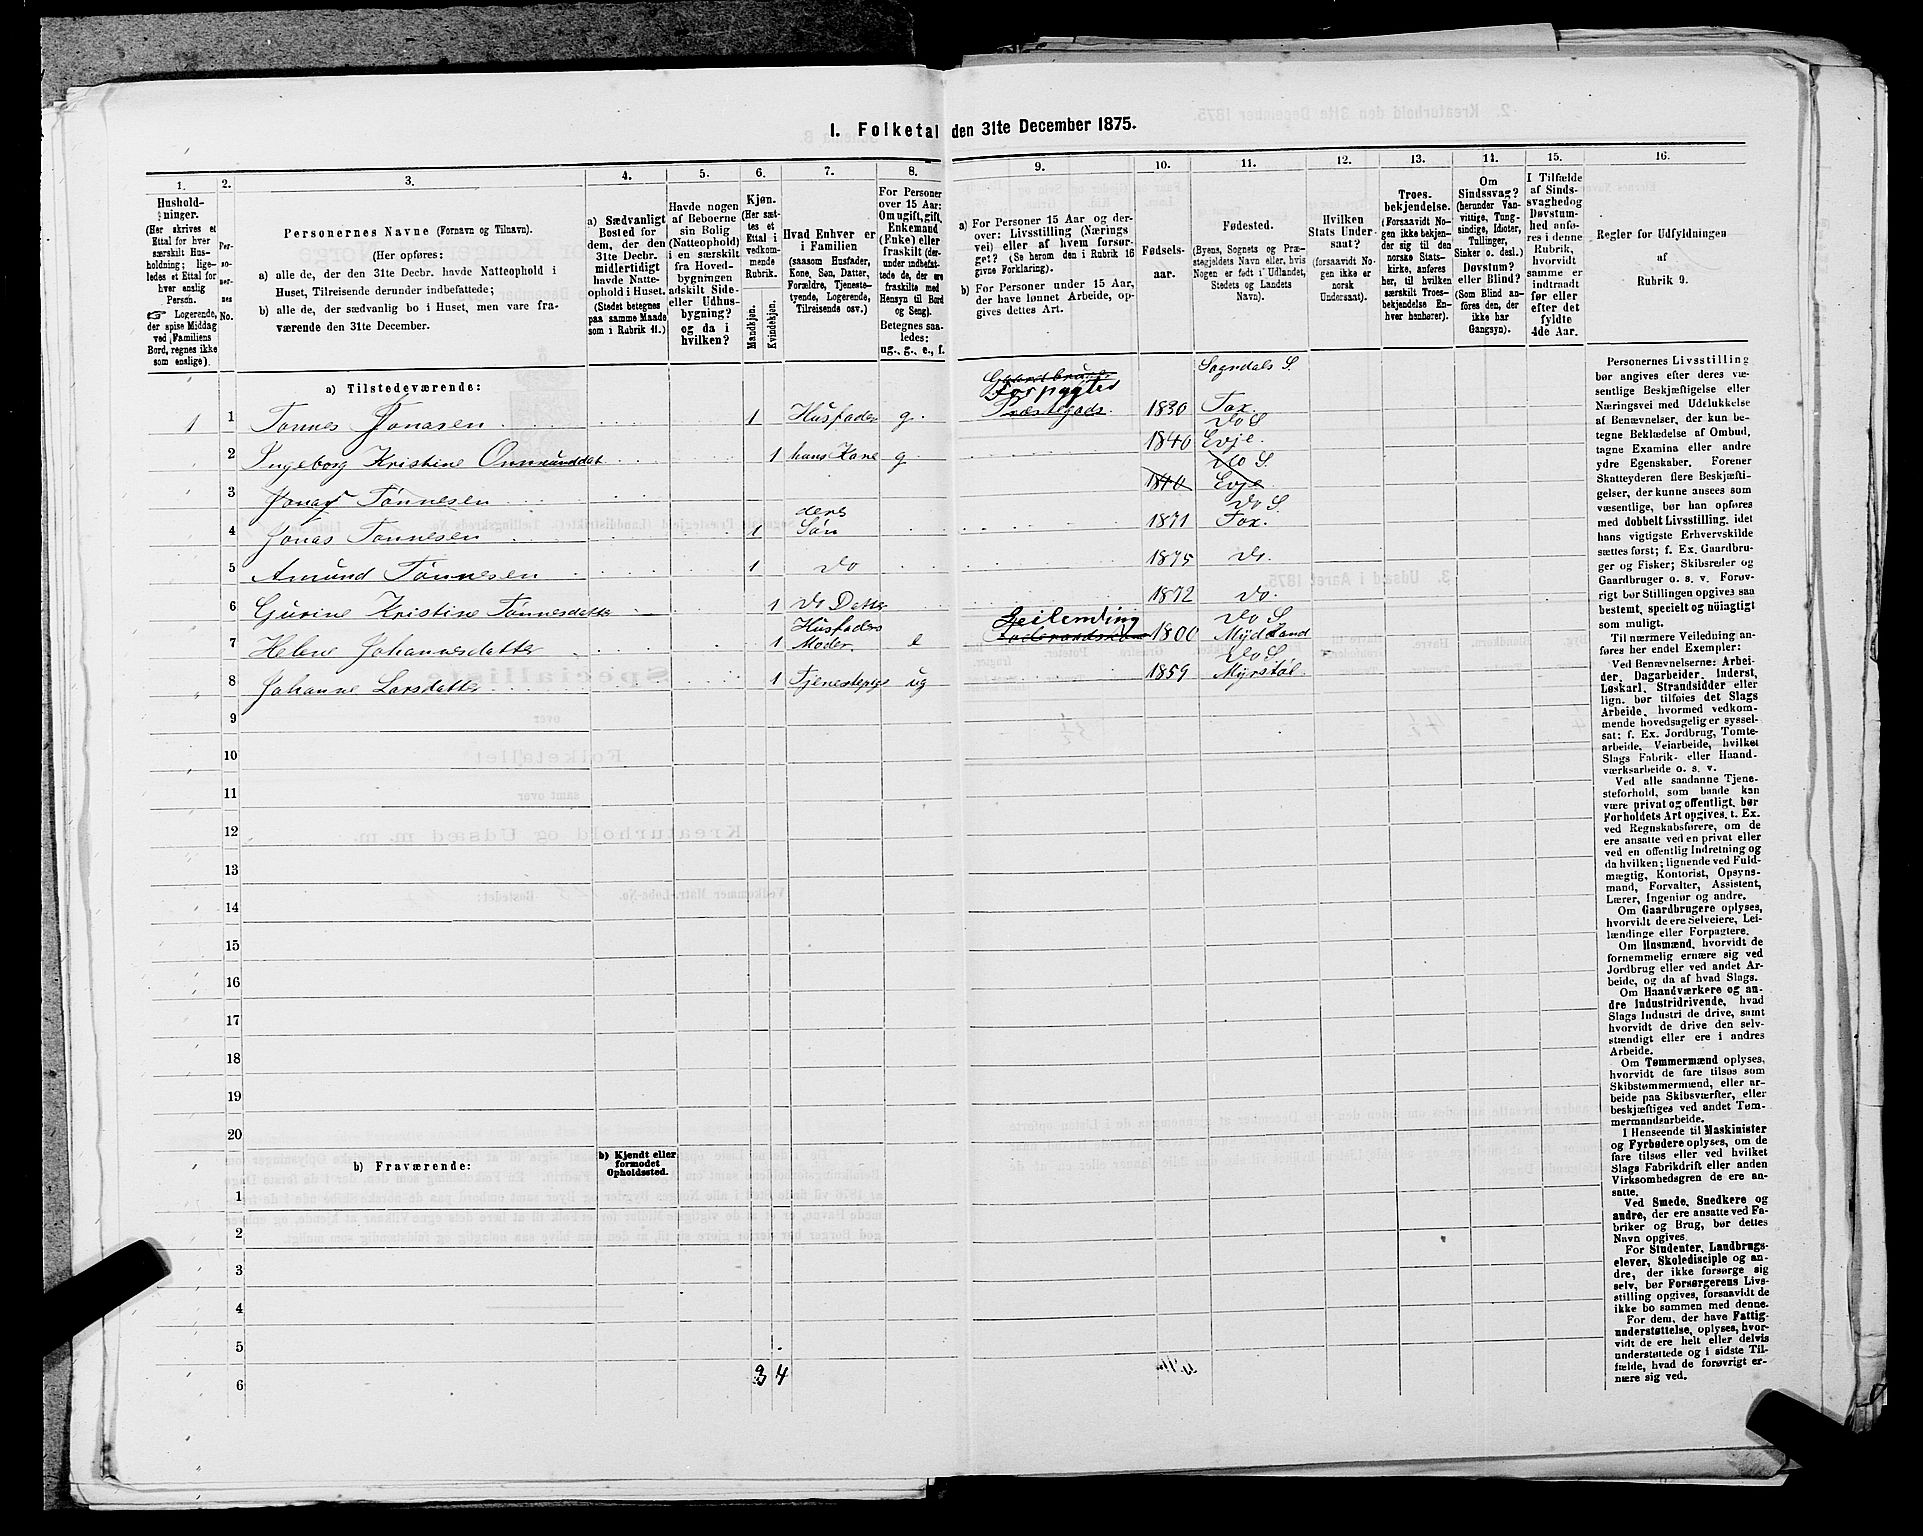 I. Folketal den 31te December 1875.
1. 2. 3. 4. 5. 6. 7. 8. 9. 10. 11. 12. 13. 14. 15. 16.
Husholdninger.
(Her skrives et
Ettal for hver
særskilt Husholdning;
ligeledes et Ettal for
hver enslig
Person.
☞ Logerende,
der spise Middag
ved Familiens
Bord, regnes ikke
som enslige).
Personernes No.
Personernes Navne (Fornavn og Tilnavn).
(Her opføres:
a) alle de, der den 31te Decbr. havde Natteophold i
Huset, Tilreisende derunder indbefattede;
b) alle de, der sædvanlig bo i Huset, men vare fraværende
den 31te December.
a) Sædvanligt
Bosted for
dem, der den
31te Decbr.
midlertidigt
havde Natteophold
i Huset.
(Stedet betegnes
paa samme Maade
som i Rubrik 11.)
Havde nogen
af Beboerne
sin Bolig
(Natteophold)
i en særskilt
fra Hovedbygningen
adskilt Side-
eller Udhusbygning?
og da i
hvilken?
Kjøn.
(Her sættes
et
Ettal i
vedkommende
Rubrik.
Mandkjøn. Kvindekjøn.
Hvad Enhver er
i Familien
(saasom Husfader,
Kone, Søn, Datter,
Forældre, Tjenestetyende,
Logerende,
Tilreisende osv.)
For Personer
over 15 Aar:
Om ugift, gift,
Enkemand
(Enke) eller
fraskilt (derunder
indbefattede
de, der ere
fraskilte med
Hensyn til Bord
og Seng).
Betegnes saaledes:
ug., g., e., f.
a) For Personer 15 Aar og derover:
Livsstilling (Næringsvei)
eller af hvem forsørget?
(Se herom den i Rubrik 16
givne Forklaring).
b) For Personer under 15 Aar,
der have lønnet Arbeide, opgives
dettes Art.
Fødselsaar.
Fødested.
(Byens, Sognets og Præstegjeldets
Navn eller, hvis
Nogen er født i Udlandet,
Stedets og Landets
Navn).
Hvilken
Stats Undersaat?
(forsaavidt Nogen
ikke er
norsk
Undersaat).
Troesbekjendelse.
(Forsaavidt Nogen
ikke bekjender
sig til den
norske Statskirke,
anføres
her, til hvilken
særskilt Troesbekjendelse
Enhver
henhører).
Om
Sindssvag?
(herunder Vanvittige,
Tungsindige,
Idioter,
Tullinger,
Sinker o. desl.)
Døvstum?
eller Blind?
(Som Blind anføres
den, der
ikke har
Gangsyn).
I Tilfælde
af Sindssvaghed
og
Døvstumhed
anføres
i denne
Rubrik,
hvorvidt
samme er
indtraadt
før eller
efter det
fyldte
4de Aar.
Regler for Udfyldningen
af
Rubrik 9.
a) Tilstedeværende:
Gaardbruger
Forpagted
Sogndals S.
1 1 Tønnes Jonasen 1 Husfader g. Præstegods. 1830 Fox.
2 Ingeborg Kristine Ommundsdat 1 hans Kone g 1840 Do S Evje.
3 Jonas Tønnesen 1840 Do S. Evje
4 Jonas Tønnesen 1 deres Søn 1871 Do S. Fox.
5 Amund Tønnesen 1 Do 1875 Do.
6 Gurine Kristine Tønnesdatter 1 Do Datter 1872 Do.
7 Helene Johannesdatter 1 Husfaders Moder. e Leilending 1800 Do S Mydland
8 Johanne Larsdatter 1 Tjenestepige ug 1859 Do S Myrstøl.
9
10
11
12
13
14
15
16
17
18
19
20
b) Fraværende:
b) Kjendt eller
formodet
Opholdssted.
1
2
3
4
5
6
3 4
Personernes Livsstilling
bør angives efter deres væsentlige
Beskjæftigelse eller
Næringsvei med Udelukkelse
af Benævnelser, der kun betegne
Beklædelse af Ombud,
tagne Examina eller andre
ydre Egenskaber. Forener
Skatteyderen flere Beskjæftigelser,
der kunne ansees som
væsentlige, bør han opføres
med dobbelt Livsstilling, idet
hans vigtigste Erhvervskilde
sættes først; f. Ex. Gaardbruger
og Fisker; Skibsreder og
Gaardbruger o. s. v. Forøvrigt
bør Stillingen opgives saa
bestemt, specielt og nøiagtigt
som muligt.
Til nærmere Veiledning anføres
her endel Exempler:
Ved Benævnelserne: Arbeider,
Dagarbeider, Inderst,
Løskarl, Strandsidder eller
lign. bør tilføies det Slags
Arbeide, hvormed vedkommende
hovedsagelig er sysselsat;
f. Ex. Jordbrug, Tomtearbeide,
Veiarbeide, hvilket
Slags Fabrik- eller Haandværksarbeide
o. s. v.
Ved alle saadanne Tjenesteforhold,
som baade kan
være privat og offentligt, bør
Forholdets Art opgives, t. Ex.
ved Regnskabsførere, om de
ere ansatte ved en privat eller
ved en offentlig Indretning og
da hvilken; lignende ved Fuldmægtig,
Kontorist, Opsynsmand,
Forvalter, Assistent,
Lærer, Ingeniør og andre.
Om Gaardbrugere oplyses,
hvorvidt de ere Selveiere, Leilændinge
eller Forpagtere.
Om Husmænd, hvorvidt de
fornemmelig ernære sig ved
Jordbrug eller ved andet Arbeide,
og da af hvad Slags.
Om Haandværkere og andre
Industridrivende, hvad
Slags Industri de drive, samt
hvorvidt de drive den selvstændigt
eller ere i andres
Arbeide.
Om Tømmermænd oplyses,
hvorvidt de fare tilsøs som
Skibstømmermænd, eller arbeide
paa Skibsværfter, eller
beskjæftiges ved andet Tømmermandsarbeide.
I Henseende til Maskinister
og Fyrbødere oplyses, om de
fare tilsøs eller ved hvilket
Slags Fabrikdrift eller anden
Virksomhedsgren de ere ansatte.
Ved Smede, Snedkere og
andre, der ere ansatte ved Fabriker
og Brug, bør dettes
Navn opgives.
For Studenter, Landbrugselever,
Skoledisciple og andre,
der ikke forsørge sig
selv, bør Forsørgerens Livsstilling
opgives, forsaavidt de
ikke bo sammen med denne.
For dem, der have Fattigunderstøttelse,
oplyses, hvorvidt
de ere helt eller delvis
understøttede og i sidste Tilfælde,
hvad de forøvrigt ernære
sig ved.